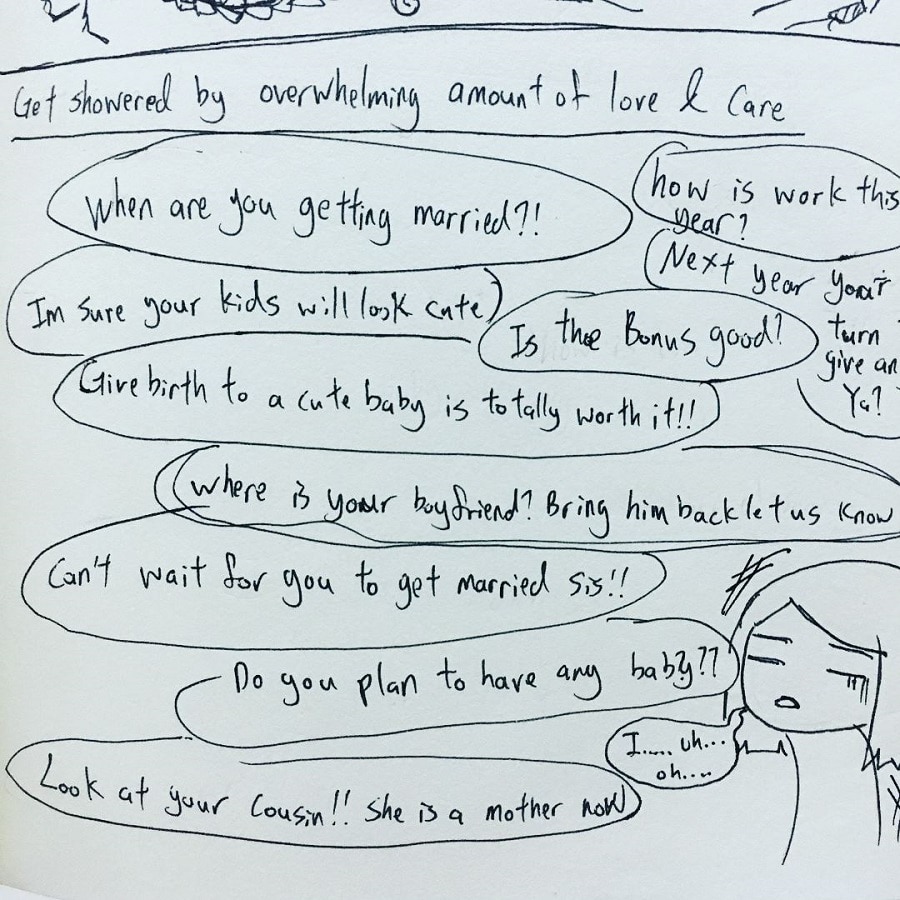 Get showered by overwhelming amount of love & Care
When are you getting married?!
how is work this
year?
Im sure your kids will look cute
Next year your
turn
give an
Ya?
Is the Bonus good?
Give birth to a cute baby is totally worth it!!
Where is your boyfriend? Bring him back let us know
Can't wait for you to get married sis!!
Do you plan to have any baby??
I..... uh...
oh....
Look at your Cousin!! She is a mother now